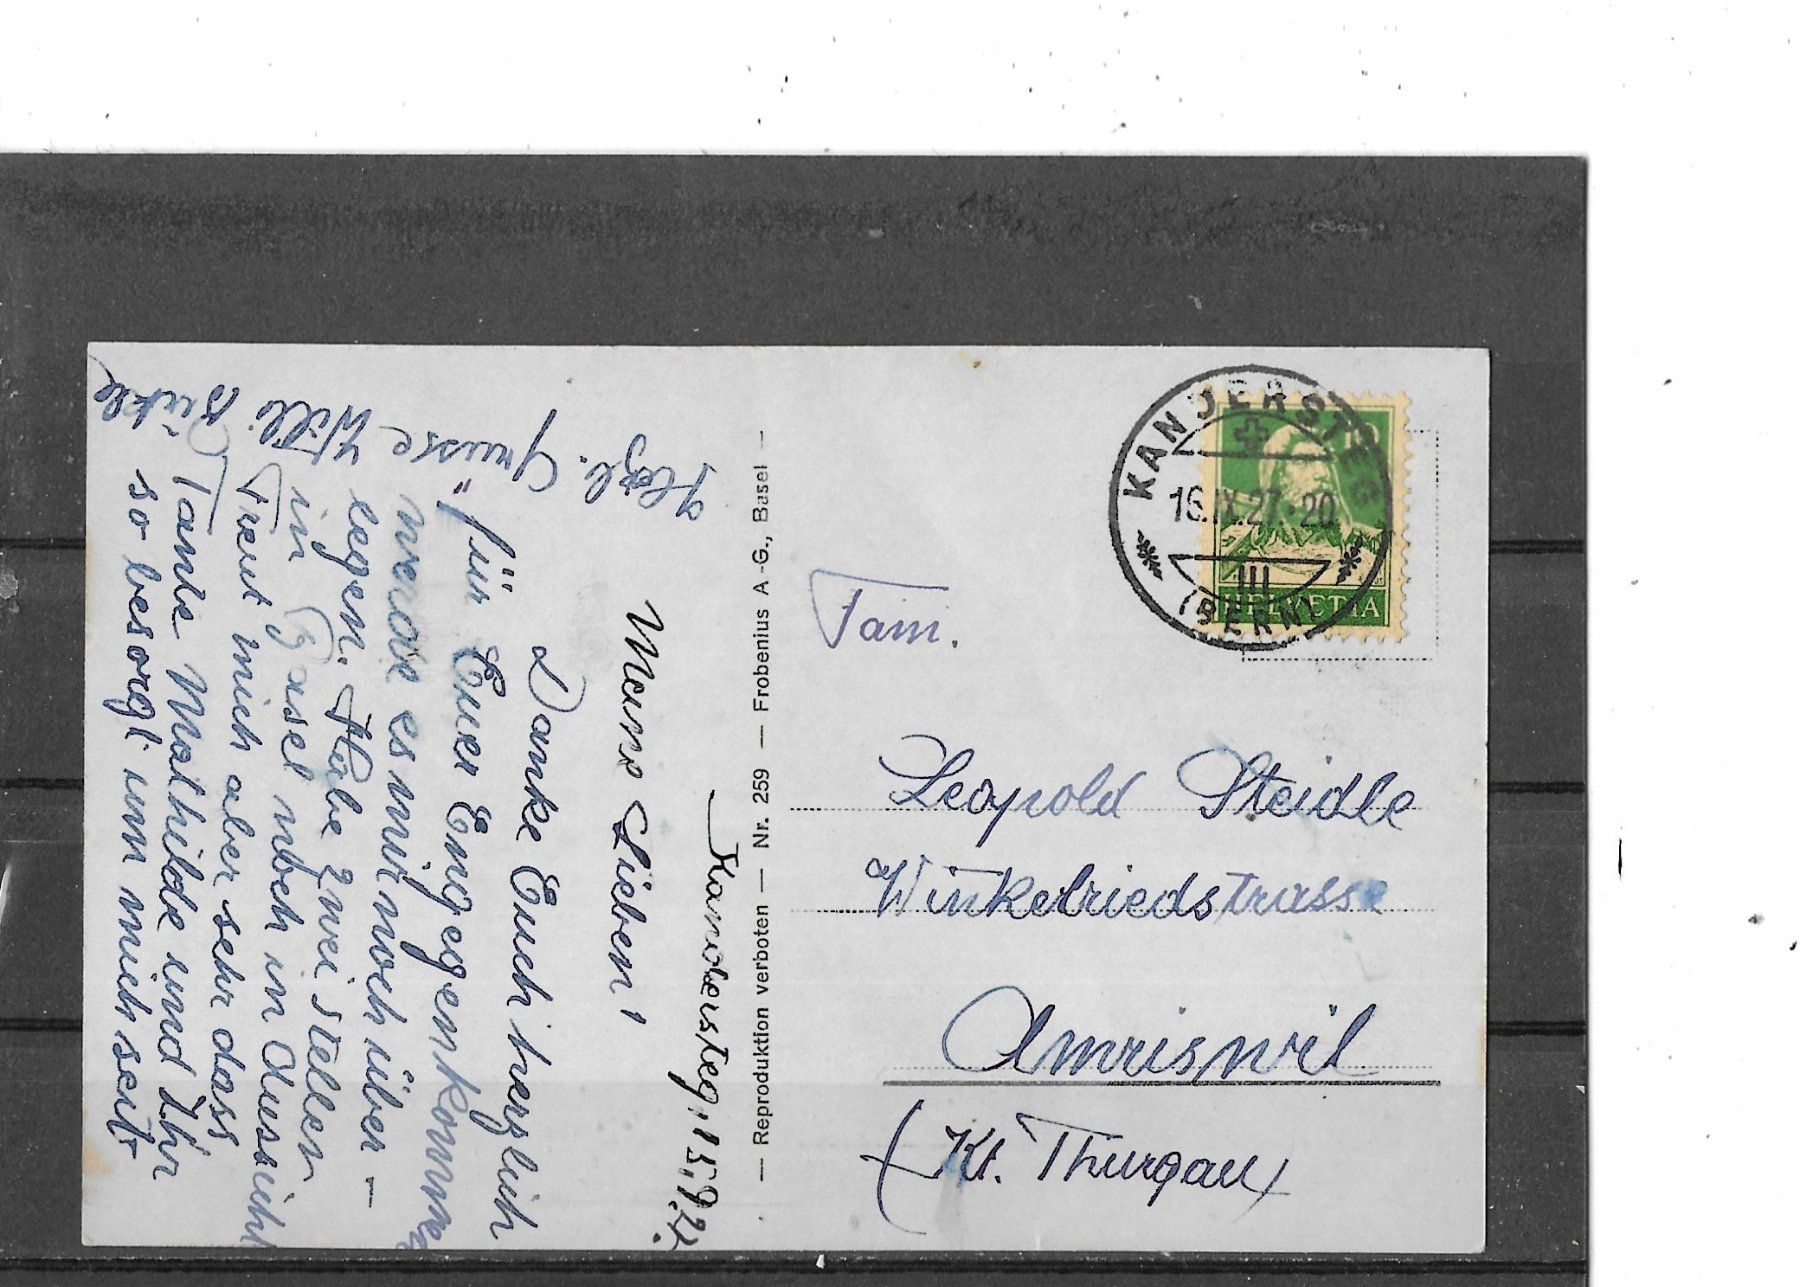 Kandersteg, 15.9.27.
Meine Lieben!
Danke Euch herzlich
für Euer Entgegenkommen
werde es mir noch über-
legen. Habe zwei Stellen
in Basel noch in Aussicht
Freut mich aber sehr dass
Tante Mathilde und Ihr
so besorgt um mich seit
Herzl. Grüsse Willi
— Reproduktion verboten — Nr. 259 — Frobenius A.-G., Basel —
KANDERSTEG
16.IX.27.-20
III
(BERN)
10
HELVETIA
Fam.
Leopold Steidle
Winkelriedstrasse
Amriswil
(Kt. Thurgau)